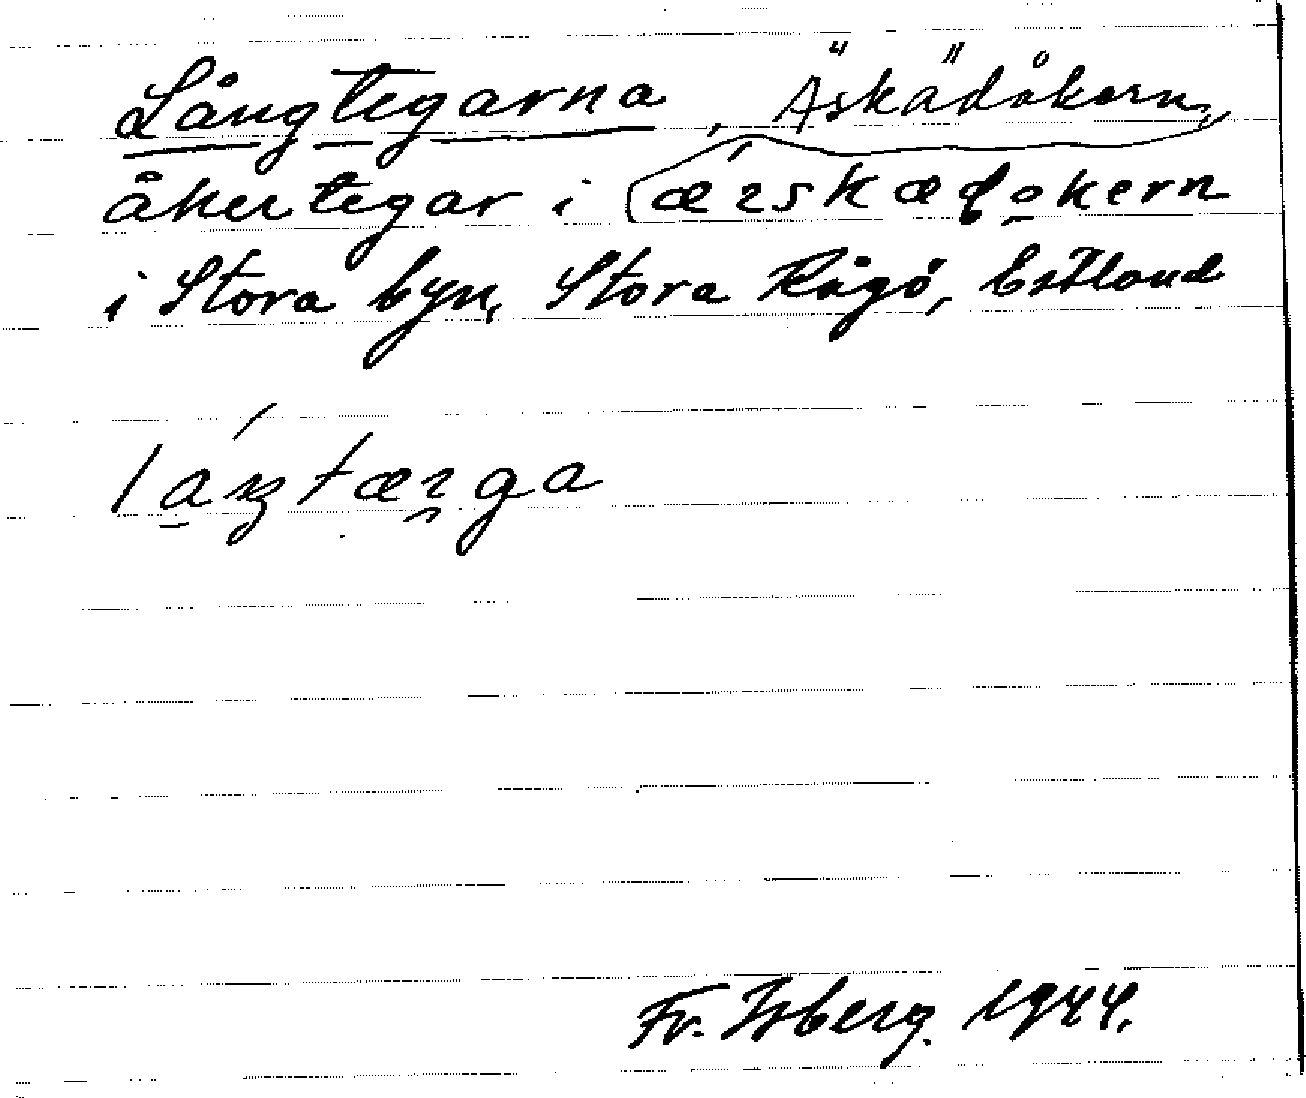 Långtegarna, Äskädåkern,
åkertegar i ǽɿskædo̱kern
i Stora byn, Stora Rågö, Estland
lá̱ŋtæɿga
Fr. Isberg. 1944.